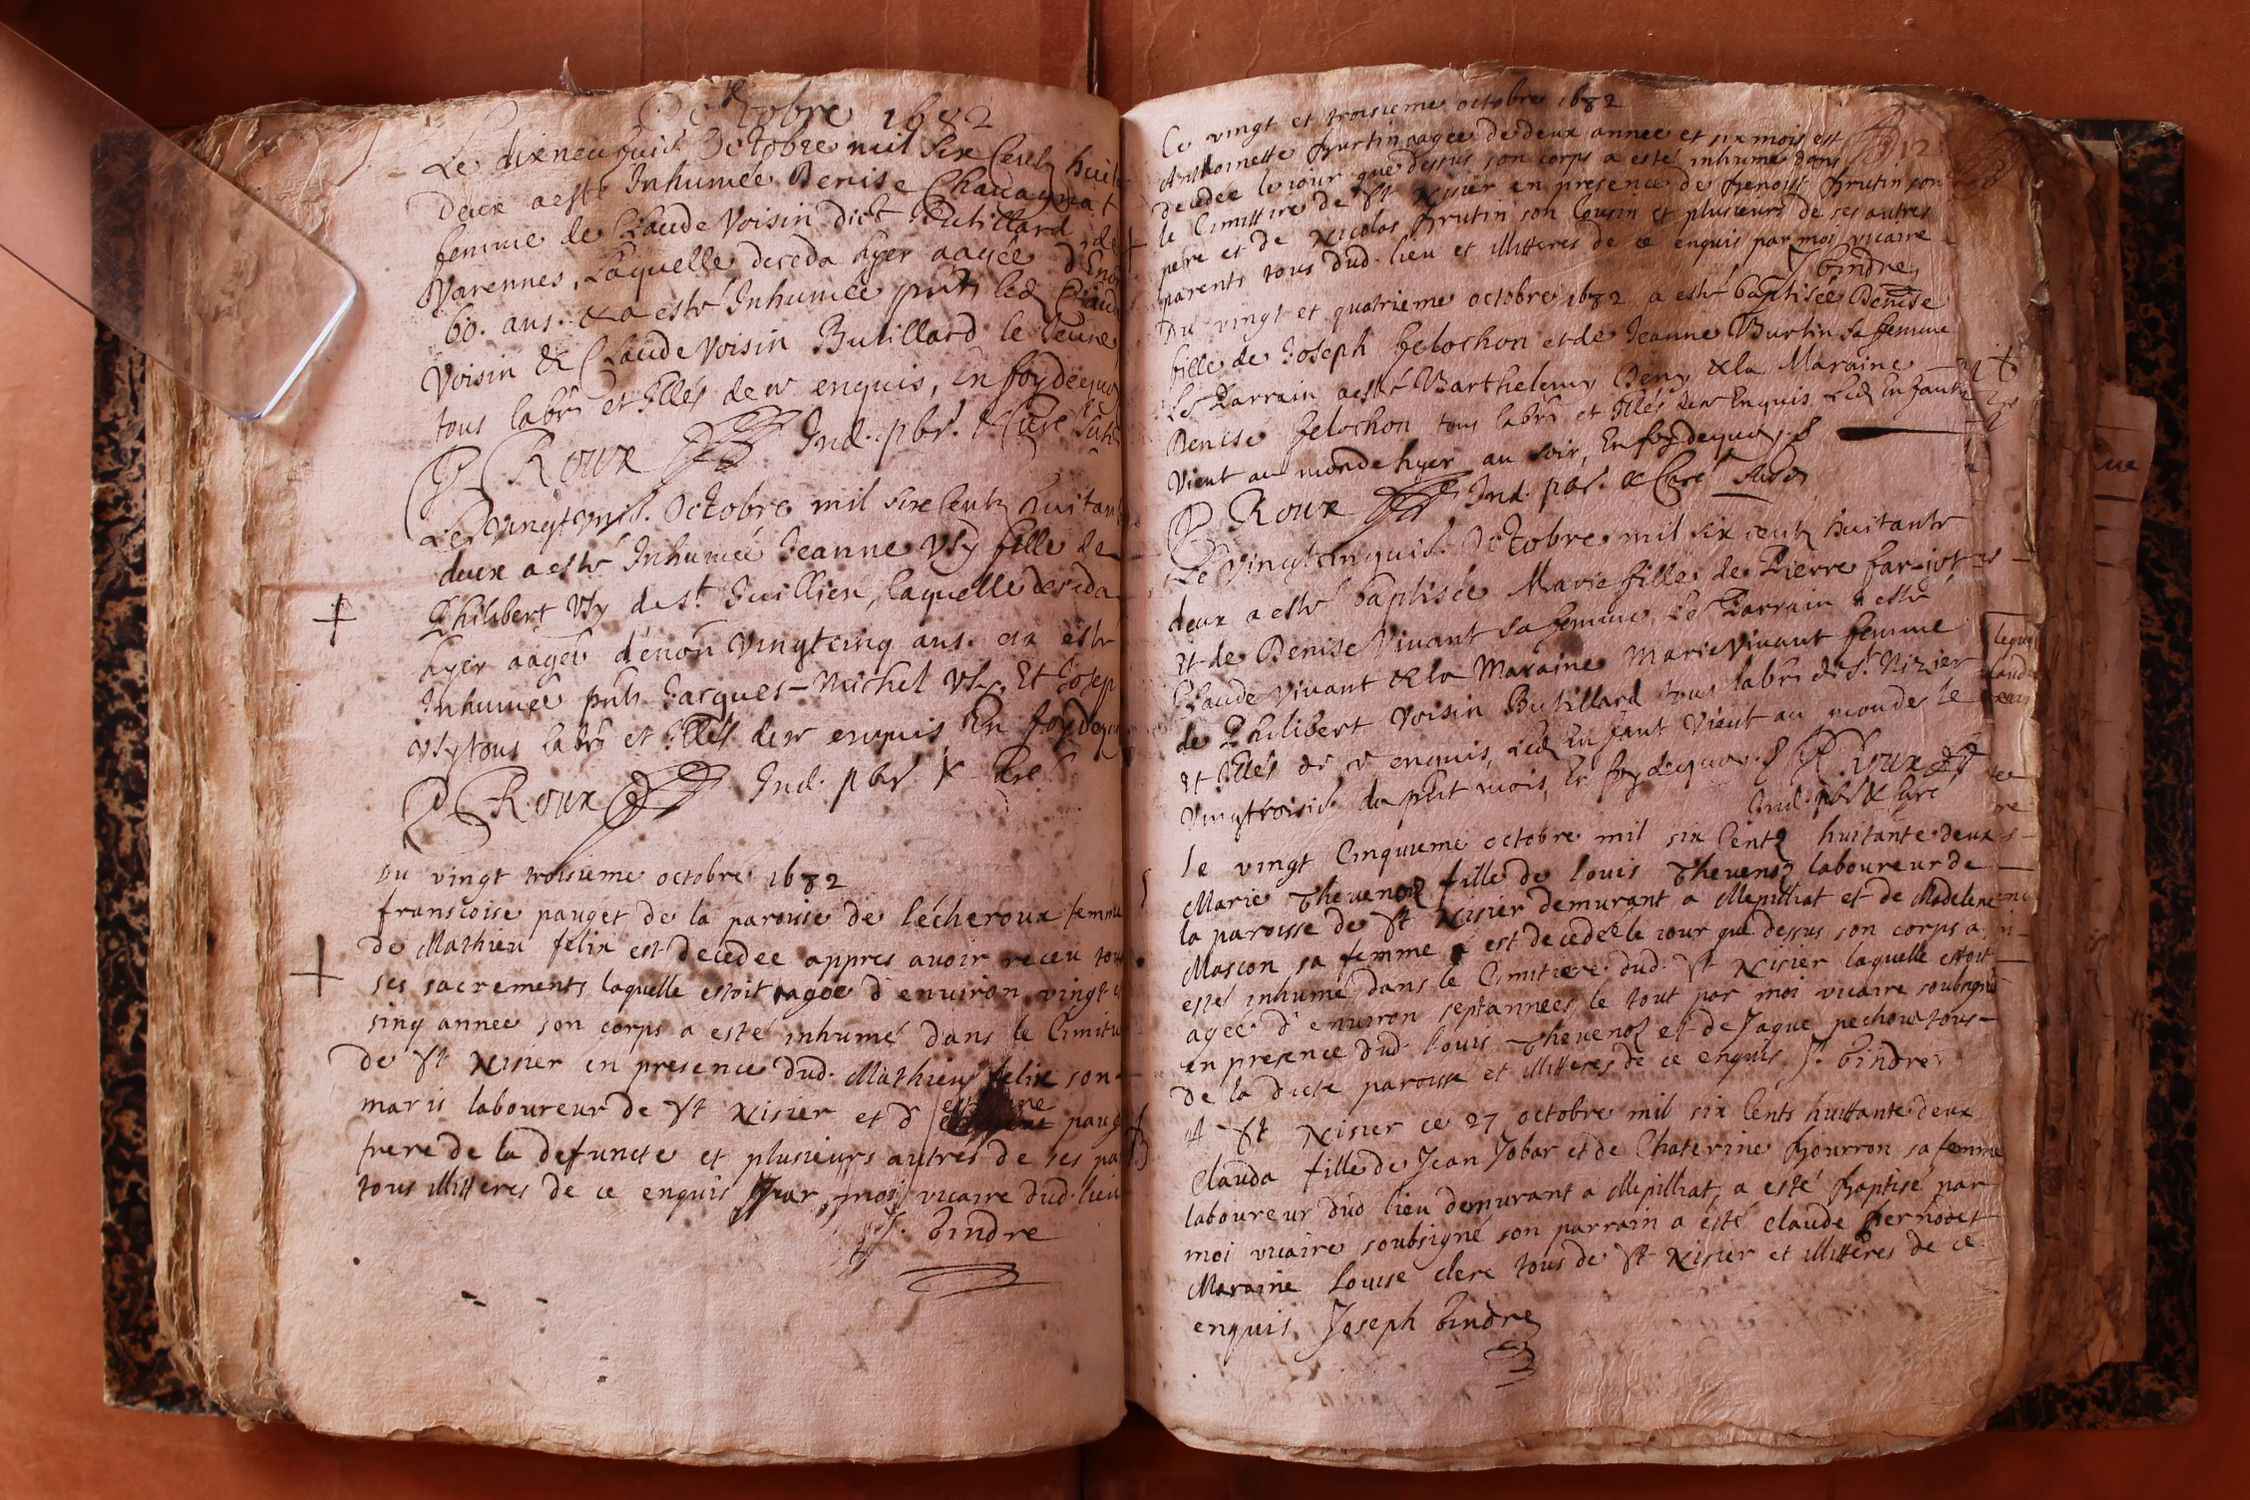 Octobre 1682
Le dixneufuie. Octobre mil Six Centz huit
deux a esté Inhumée Denise Chauagnat
femme de Claude Voisin dict Butillard de
Varennes, Laquelle deceda hyer aagée d'Enon
60. ans. & a esté Inhumée pnts led Claud
Voisin & Claude Voisin Butillard le Jeune
tous labrs et Illés de ce enquis, En foy dequoy
P Roux Ind. pbr. & Curé
Le Vingtvnie. Octobre mil Six Centz huitan
deux a esté Inhumée Jeanne Vsy fille de
Philibert Vsy de St. Juillien, laquelle deceda
hyer aagée d'énon Vingtcinq ans. & a esté
Inhumée pnts Jacques-Michel Vsy. Et Josep
Vsy tous labrs et Illés de ce enquis En foy dequ
P Roux Ind. pbr &
Du vingt troisieme octobre 1682
fransçoise pauget de la paroisse de lécheroux femme
de Mathieu félix est decedee appres auoir receu tou
ses sacrements laquelle estoit agee d enuiron vingt
sinq annee son corps a esté inhumé dans le Cimitie
de St Nisier en presence dud. Mathieu felix son
maris laboureur de St Nisier et d paug
frere de la defuncte et plusieurs autres de ses pa
tous illitteres de ce enquis par moi vicaire dud. lieu
J. Tindre
Ce vingt et troisieme octobre 1682
Anthoinette Burtin aagee de deux annee et six mois est
decedee le iour que dessus son corps a esté inhume dans
le Cimittire de St Nisier en presence de Benoist Brutin son
pere et de Nicolas Brutin son Cousin et plusieurs de ses autres
parents tous dud. lieu et illitteres de ce enquis par moi vicaire
J Tindre
Du vingt et quatrieme octobre 1682 a esté baptisée Denise
fille de Joseph felochon et de Jeanne Burtin sa femme
Le Parrain a esté Barthelemy Deny & la Maraine
Denise felochon tous labrs et Illés de ce Enquis, Led Enfant
Vient au monde hyer au soir, En foy dequoy
P Roux Ind. pbr. & Curé
Le Vingtcinquie. Octobre mil six centz huitante
deux a esté baptisée Marie fille de Pierre farjot
Et de Denise Vivant sa femme, Le Parrain a esté
Claude Vivant & la Maraine Marie Vivant femme
de Philibert Voisin Butillard tous labrs de St. Nizier
Et Illés de ce enquis, Led Enfant Vient au monde le
Vingtroisie. du pnt mois, En foy dequoy P. Roux
Ind. pbr & Curé
le vingt Cinquieme octobre mil six Cents huitante deux
Marie Thevenoz fille de louis Thevenoz laboureur de
la paroisse de St Nisier demurant a Mepilliat et de Madelene
Mascon sa femme est decedeé le iour que dessus son corps a
esté inhumé dans le Cimitiere dud. St Nisier laquelle estoit
agee d enuiron sept annees le tout par moi vicaire soubsigné
en presence dud. louis Thevenoz et de Jaque pechoux tous
de la dicte paroisse et illitteres de ce enquis J. Tindre
A St Nisier ce 27 octobre mil six Cents huittante deux
Clauda fille de Jean Jobar et de Chaterine Bourron sa femme
laboureur dud lieu demurant a Mepilliat, a esté baptisé par
moi vicaire soubsigné son parrain a esté claude Bernodet
Maraine Louise clerc tous de St Nisier et illittéres de ce
enquis Joseph Tindre